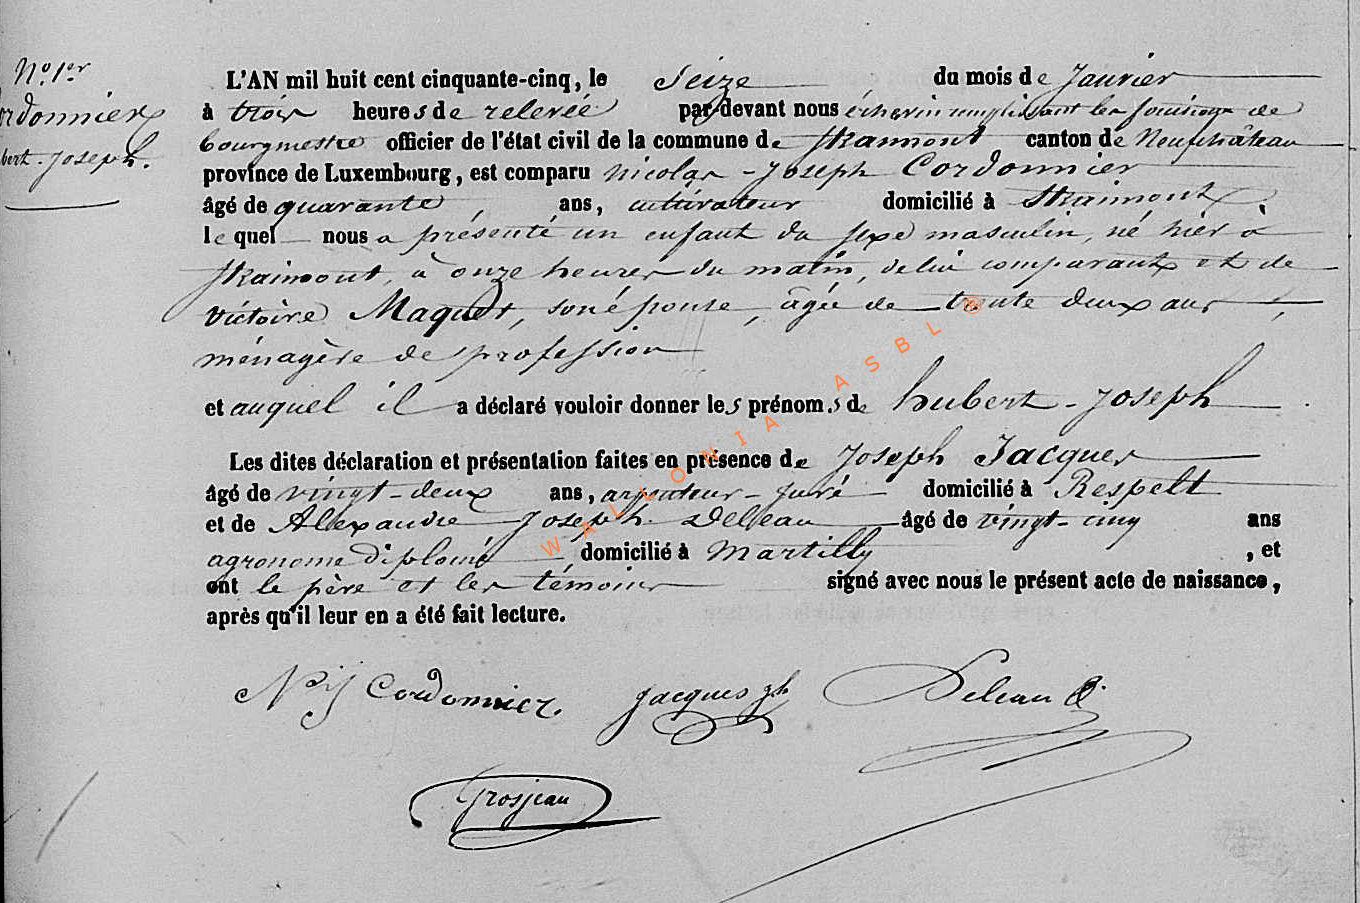 N.o 1.er
Cordonnier
hubert-Joseph.
L'AN mil huit cent cinquante-cinq, le Seize du mois de Janvier
à trois heures de relevée par-devant nous échevin remplissant les fonctions de
bourgmestre officier de l'état civil de la commune de Straimont canton de Neufchâteau
province de Luxembourg, est comparu nicolas-Joseph Cordonnier
âgé de quarante ans, cultivateur domicilié à Straimont,
lequel nous a présenté un enfant du sexe masculin, né hier à
Straimont, à onze heures du matin, de lui comparant et de
victoire Maquet, son épouse, âgée de trente deux ans,
ménagère de profession
et auquel il a déclaré vouloir donner les prénoms de hubert-Joseph
Les dites déclaration et présentation faites en présence de Joseph Jacques
âgé de vingt-deux ans, arpenteur-juré domicilié à Respelt
et de Alexandre Joseph Deleau âgé de vingt-cinq ans
agronome diplomé domicilié à Martilly, et
ont le père et les témoins signé avec nous le présent acte de naissance,
après qu'il leur en a été fait lecture.
Cordonnier. Jacques jh Deleau
Grosjean
WALLONIA ASBL ©